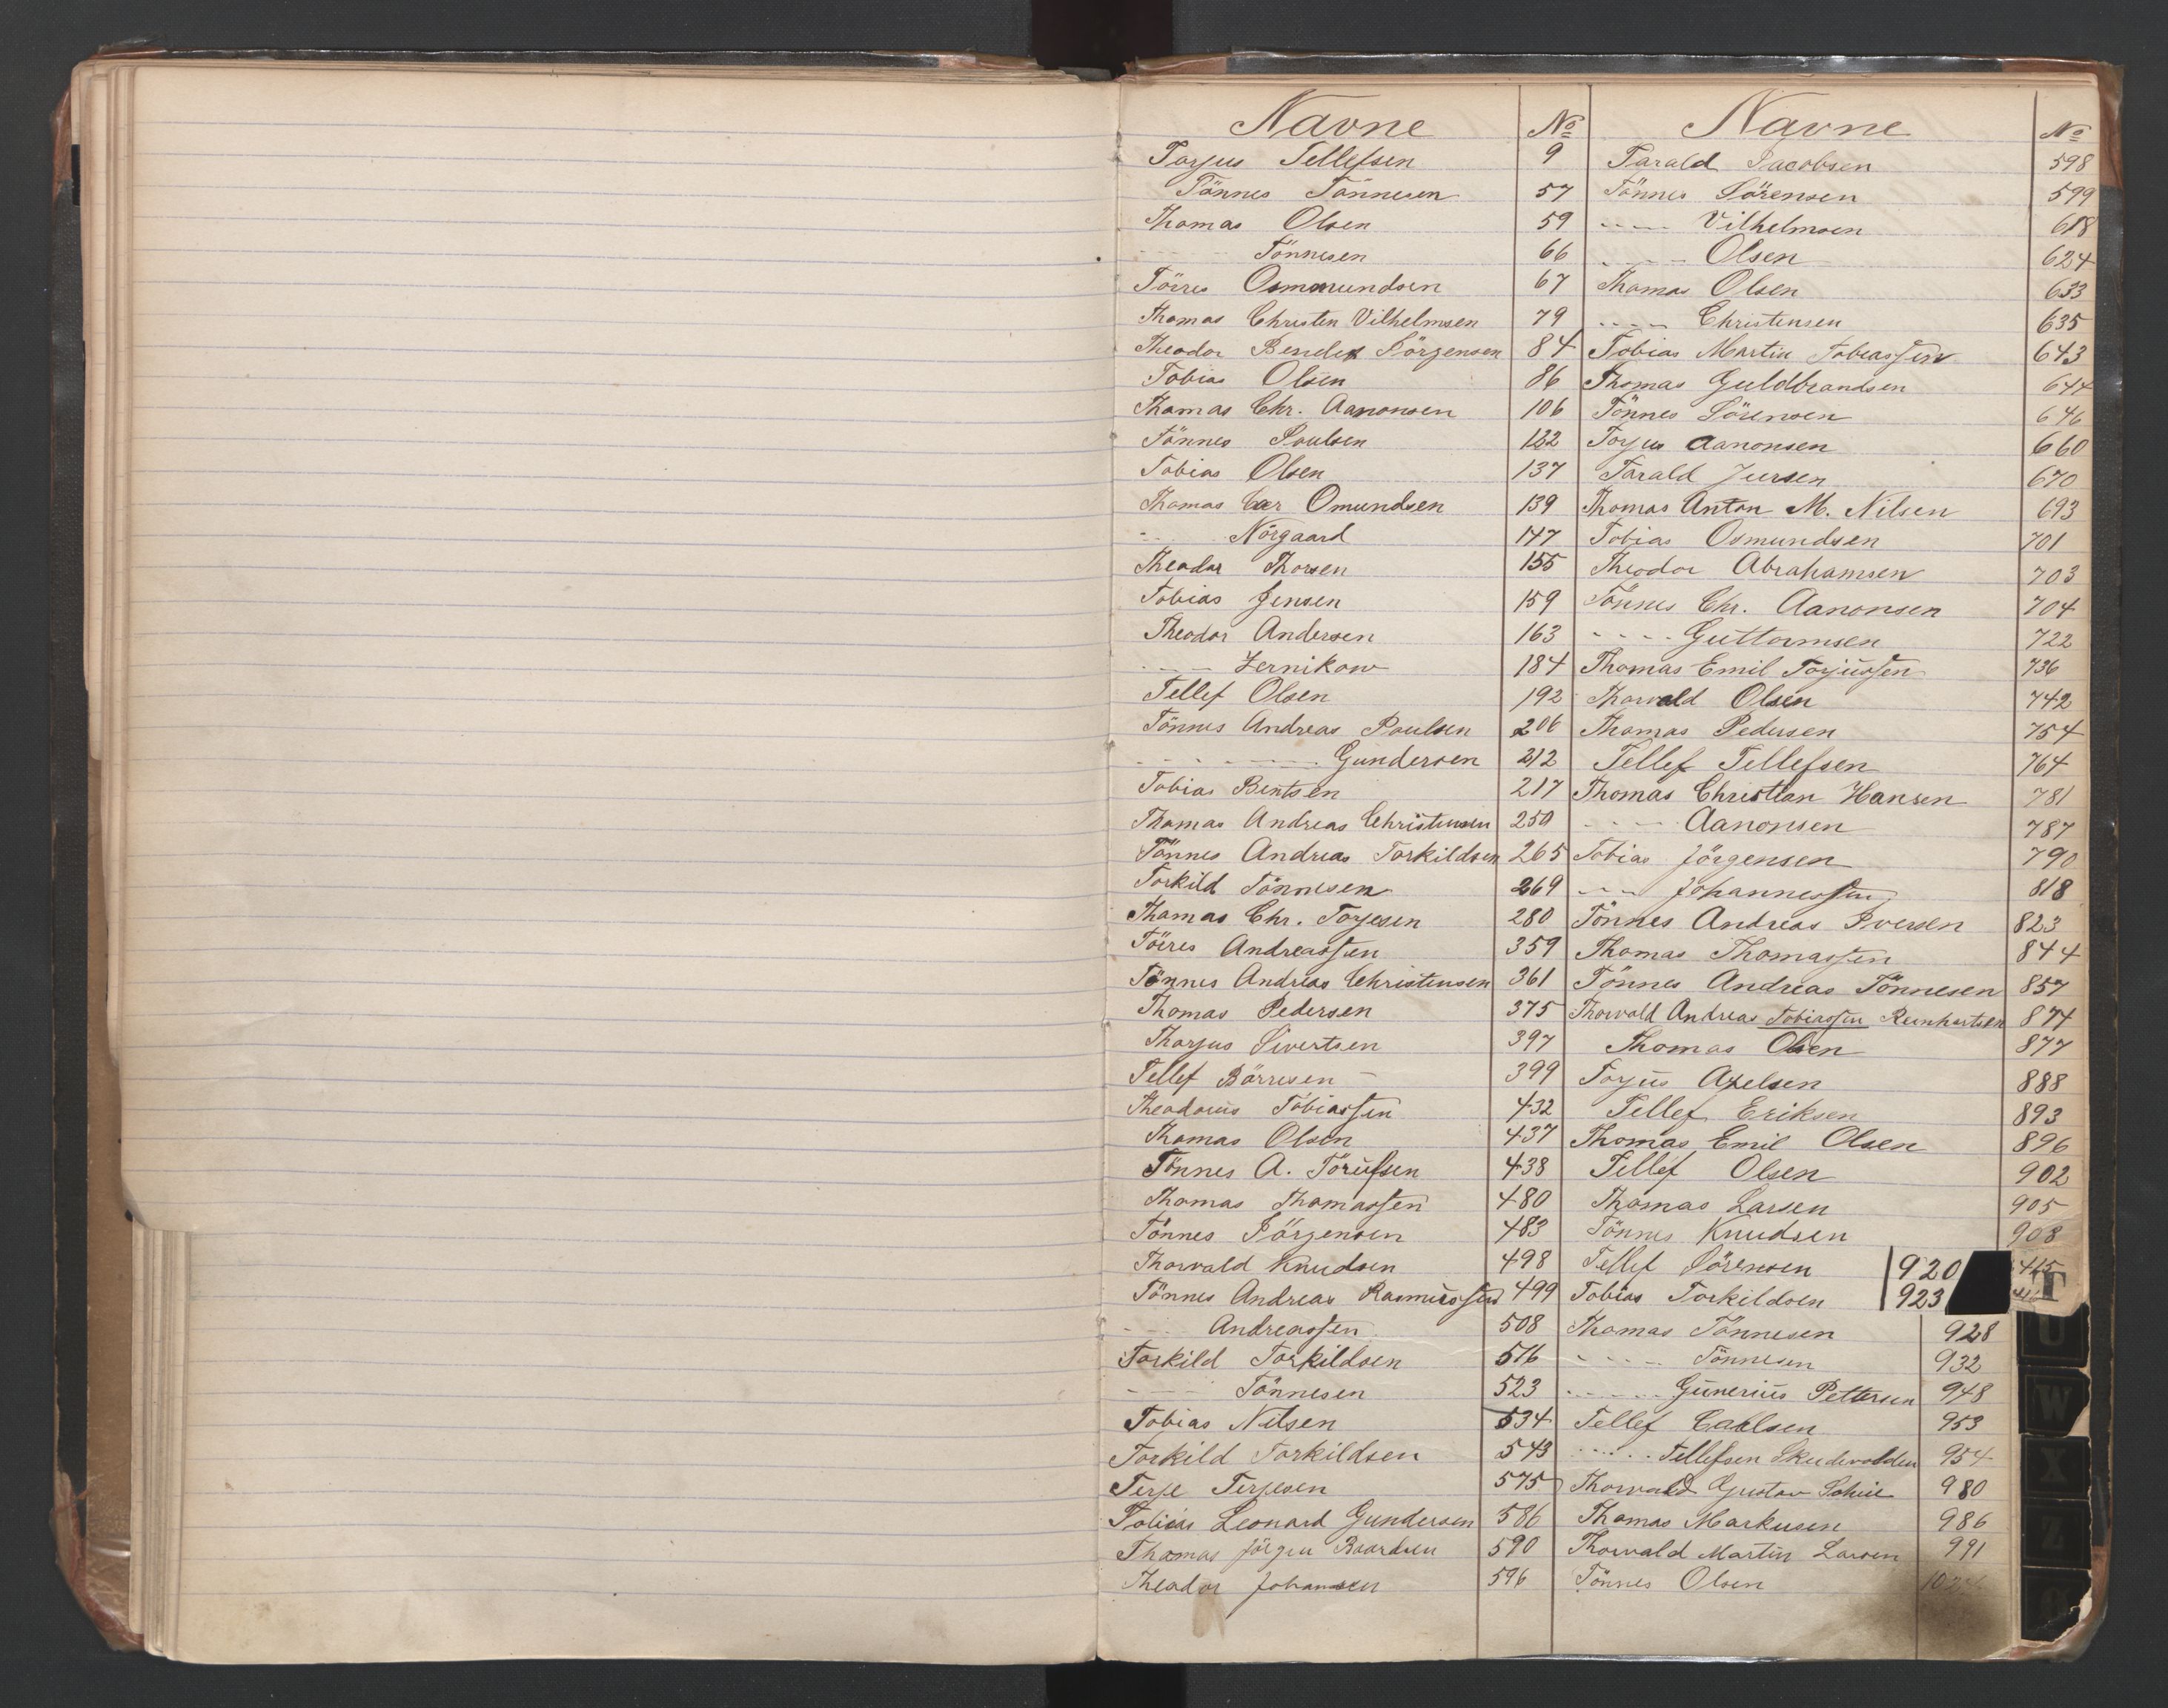 Navne No
Torjus Tellefsen 9
Tönnes Tönnesen 57
Thomas Olsen 59
---- Tönnesen 66
Törres Osmundsen 67
Thomas Christen Vilhelmsen 79
Theodor Bendix Jörgensen 84
Tobias Olsen 86
Thomas Chr. Aanonsen 106
Tönnes Poulsen 122
Tobias Olsen 137
Thomas Omundsen 139
--- Nörgaard 147
Theodor Thorsen 155
Tobias Jensen 159
Theodor Andersen 163
---- Zernikow 184
Tellef Olsen 192
Tönnes Andreas Poulsen 206
-------- Gundersen 212
Tobias Bentsen 217
Thomas Andreas Christensen 250
Tönnes Andreas Torkildsen 265
Torkild Tönnesen 269
Thomas Chr. Torjesen 280
Törres Andreassen 359
Tönnes Andreas Christensen 361
Thomas Pedersen 375
Thorjus Sivertsen 397
Tellef Börresen 399
Theodorus Tobiassen 432
Thomas Olsen 437
Tönnes A. 438
Thomas Thomassen 480
Tönnes Jörgensen 483
Thorvald Knudsen 498
Tönnes Andreas Rasmussen 499
--- Andreassen 508
Torkild Torkildsen 516
---- Tönnesen 523
Tobias Nilsen 534
Torkild Torkildsen 543
Terje Terjesen 575
Tobias Leonard Gundersen 586
Thomas Jörgen Baardsen 590
Theodor Johansen 596
Navne No
Tarald Jacobsen 598
Tönnes Sörensen 599
---- Vilhelmsen 618
---- Olsen 624
Thomas Olsen 633
---- Christensen 635
Tobias Martin Tobiassen 643
Thomas Guldbrandsen 644
Tönnes Sörensen 646
Torjus Aanonsen 660
Tarald Iversen 670
Thomas Anton M. Nilsen 693
Tobias Osmundsen 701
Theodor Abrahamsen 703
Tönnes Chr. Aanonsen 704
---- Guttormsen 722
Thomas Emil Torjussen 736
Thorvald Olsen 742
Thomas Pedersen 754
Tellef Tellefsen 764
Thomas Christian Hansen 781
---- Aanonsen 787
Tobias Jörgensen 790
--- Johannessen 818
Tönnes Andreas Iversen 823
Thomas Thomassen 844
Tönnes Andreas Tönnesen 857
Thorvald Andreas Tobiassen Reinhartsen 874
Thomas Olsen 877
Torjus Axelsen 888
Tellef Eriksen 893
Thomas Emil Olsen 896
Tellef Olsen 902
Thomas Larsen 905
Tönnes Knudsen 908
Tellef Sörensen 920
Tobias Torkildsen 923
Thomas Tönnesen 928
---- Tönnesen 932
---- Gunerius Pettersen 948
Tellef Carlsen 953
---- Tellefsen 954
Thorvald Gustav 980
Thomas Markusen 986
Thorvald Martin Larsen 991
Tönnes Olsen
T
U
W
X
Z